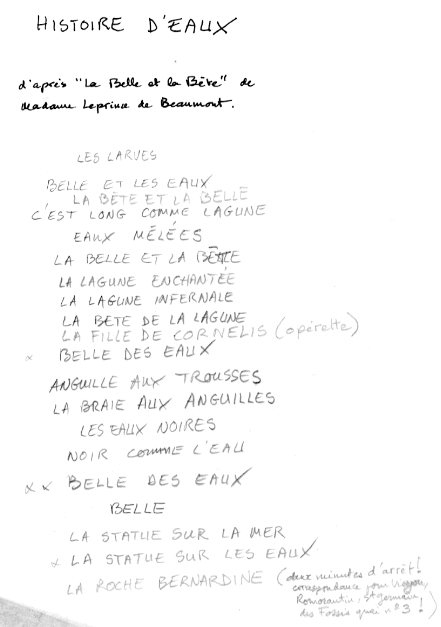 HISTOIRE D'EAUX
d'après "La Belle et la Bête" de
Madame Leprince de Beaumont.
LES LARVES
BELLE ET LES EAUX
LA BÊTE ET LA BELLE
C'EST LONG COMME LAGUNE
EAUX MÊLÉES
LA BELLE ET LA BÊTE
LA LAGUNE ENCHANTÉE
LA LAGUNE INFERNALE
LA BÊTE DE LA LAGUNE
LA FILLE DE CORNELIS (opérette)
x BELLE DES EAUX
ANGUILLE AUX TROUSSES
LA BRAIE AUX ANGUILLES
LES EAUX NOIRES
NOIR COMME L'EAU
x x BELLE DES EAUX
BELLE
LA STATUE SUR LA MER
x LA STATUE SUR LES EAUX
LA ROCHE BERNARDINE (deux minutes d'arrêt!
correspondance pour
Romorantin, St germain
des Fossés quai n° 3!)